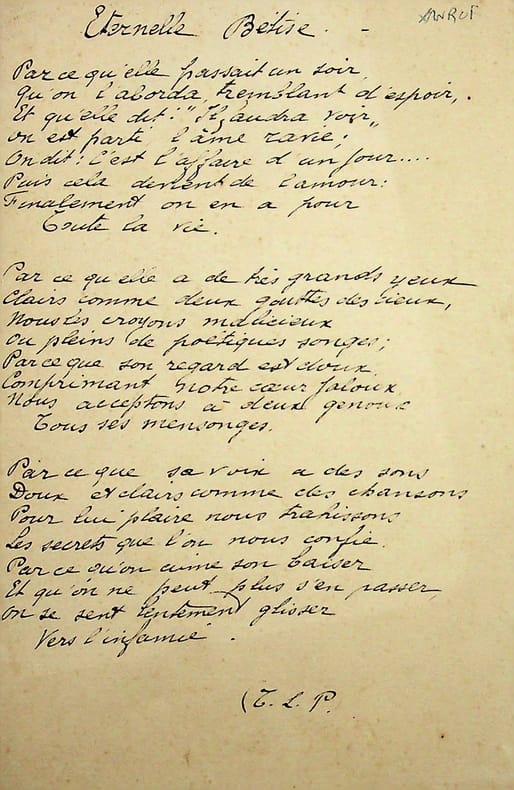 Eternelle Bêtise. -
Parce qu'elle passait un soir,
qu'on l'aborda, tremblant d'espoir,.
Et qu'elle dit: "Il faudra voir",
on est parti, l'âme ravie;
On dit: c'est l'affaire d'un jour....
Puis cela devient de l'amour:
Finalement on en a pour
Toute la vie.
Par ce qu'elle a de très grands yeux
Clairs comme deux gouttes des cieux,
Nous les croyons malicieux
Ou pleins de poétiques songes;
Parce que son regard est doux,
Comprimant notre cœur jaloux,
Nous acceptons à deux genoux
Tous ses mensonges.
Par ce que sa voix a des sons
Doux et clairs comme des chansons
Pour lui plaire nous trahissons
Les secrets que l'on nous confie.
Par ce qu'on aime son baiser
Et qu'on ne peut plus s'en passer,
On se sent lentement glisser
Vers l'infamie.
(T. L. P.)